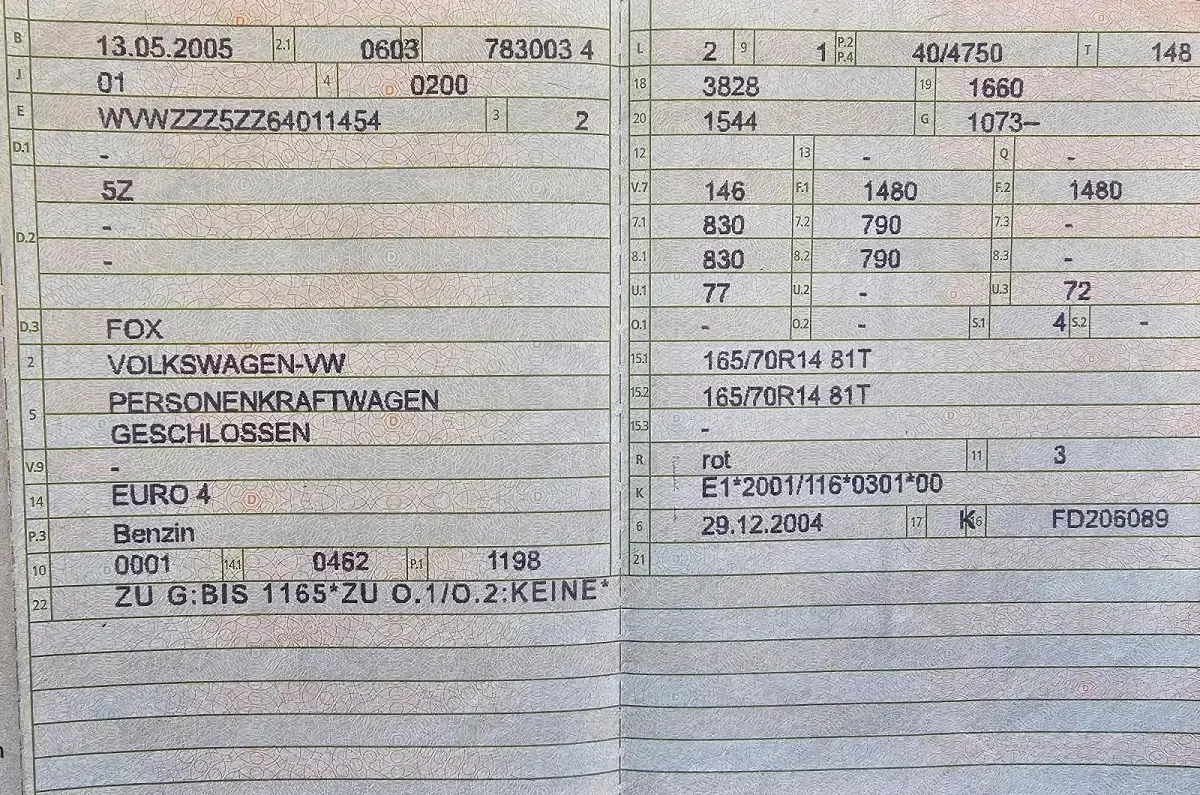 B 13.05.2005 2.1 0603 783003 4
J 01 4 0200
E WVWZZZ5ZZ64011454 3 2
D.1 -
5Z
D.2 -
-
D.3 FOX
2 VOLKSWAGEN-VW
5 PERSONENKRAFTWAGEN
GESCHLOSSEN
V.9 -
14 EURO 4
P.3 Benzin
10 0001 14.1 0462 P.1 1198
22 ZU G:BIS 1165*ZU O.1/O.2:KEINE*
L 2 9 1 P.2 P.4 40/4750 T 148
18 3828 19 1660
20 1544 G 1073–
12 13 - Q -
V.7 146 F.1 1480 F.2 1480
7.1 830 7.2 790 7.3 -
8.1 830 8.2 790 8.3 -
U.1 77 U.2 - U.3 72
O.1 - O.2 - S.1 4 S.2 -
15.1 165/70R14 81T
15.2 165/70R14 81T
15.3 -
R rot 11 3
K E1*2001/116*0301*00
6 29.12.2004 17 K 16 FD206089
21